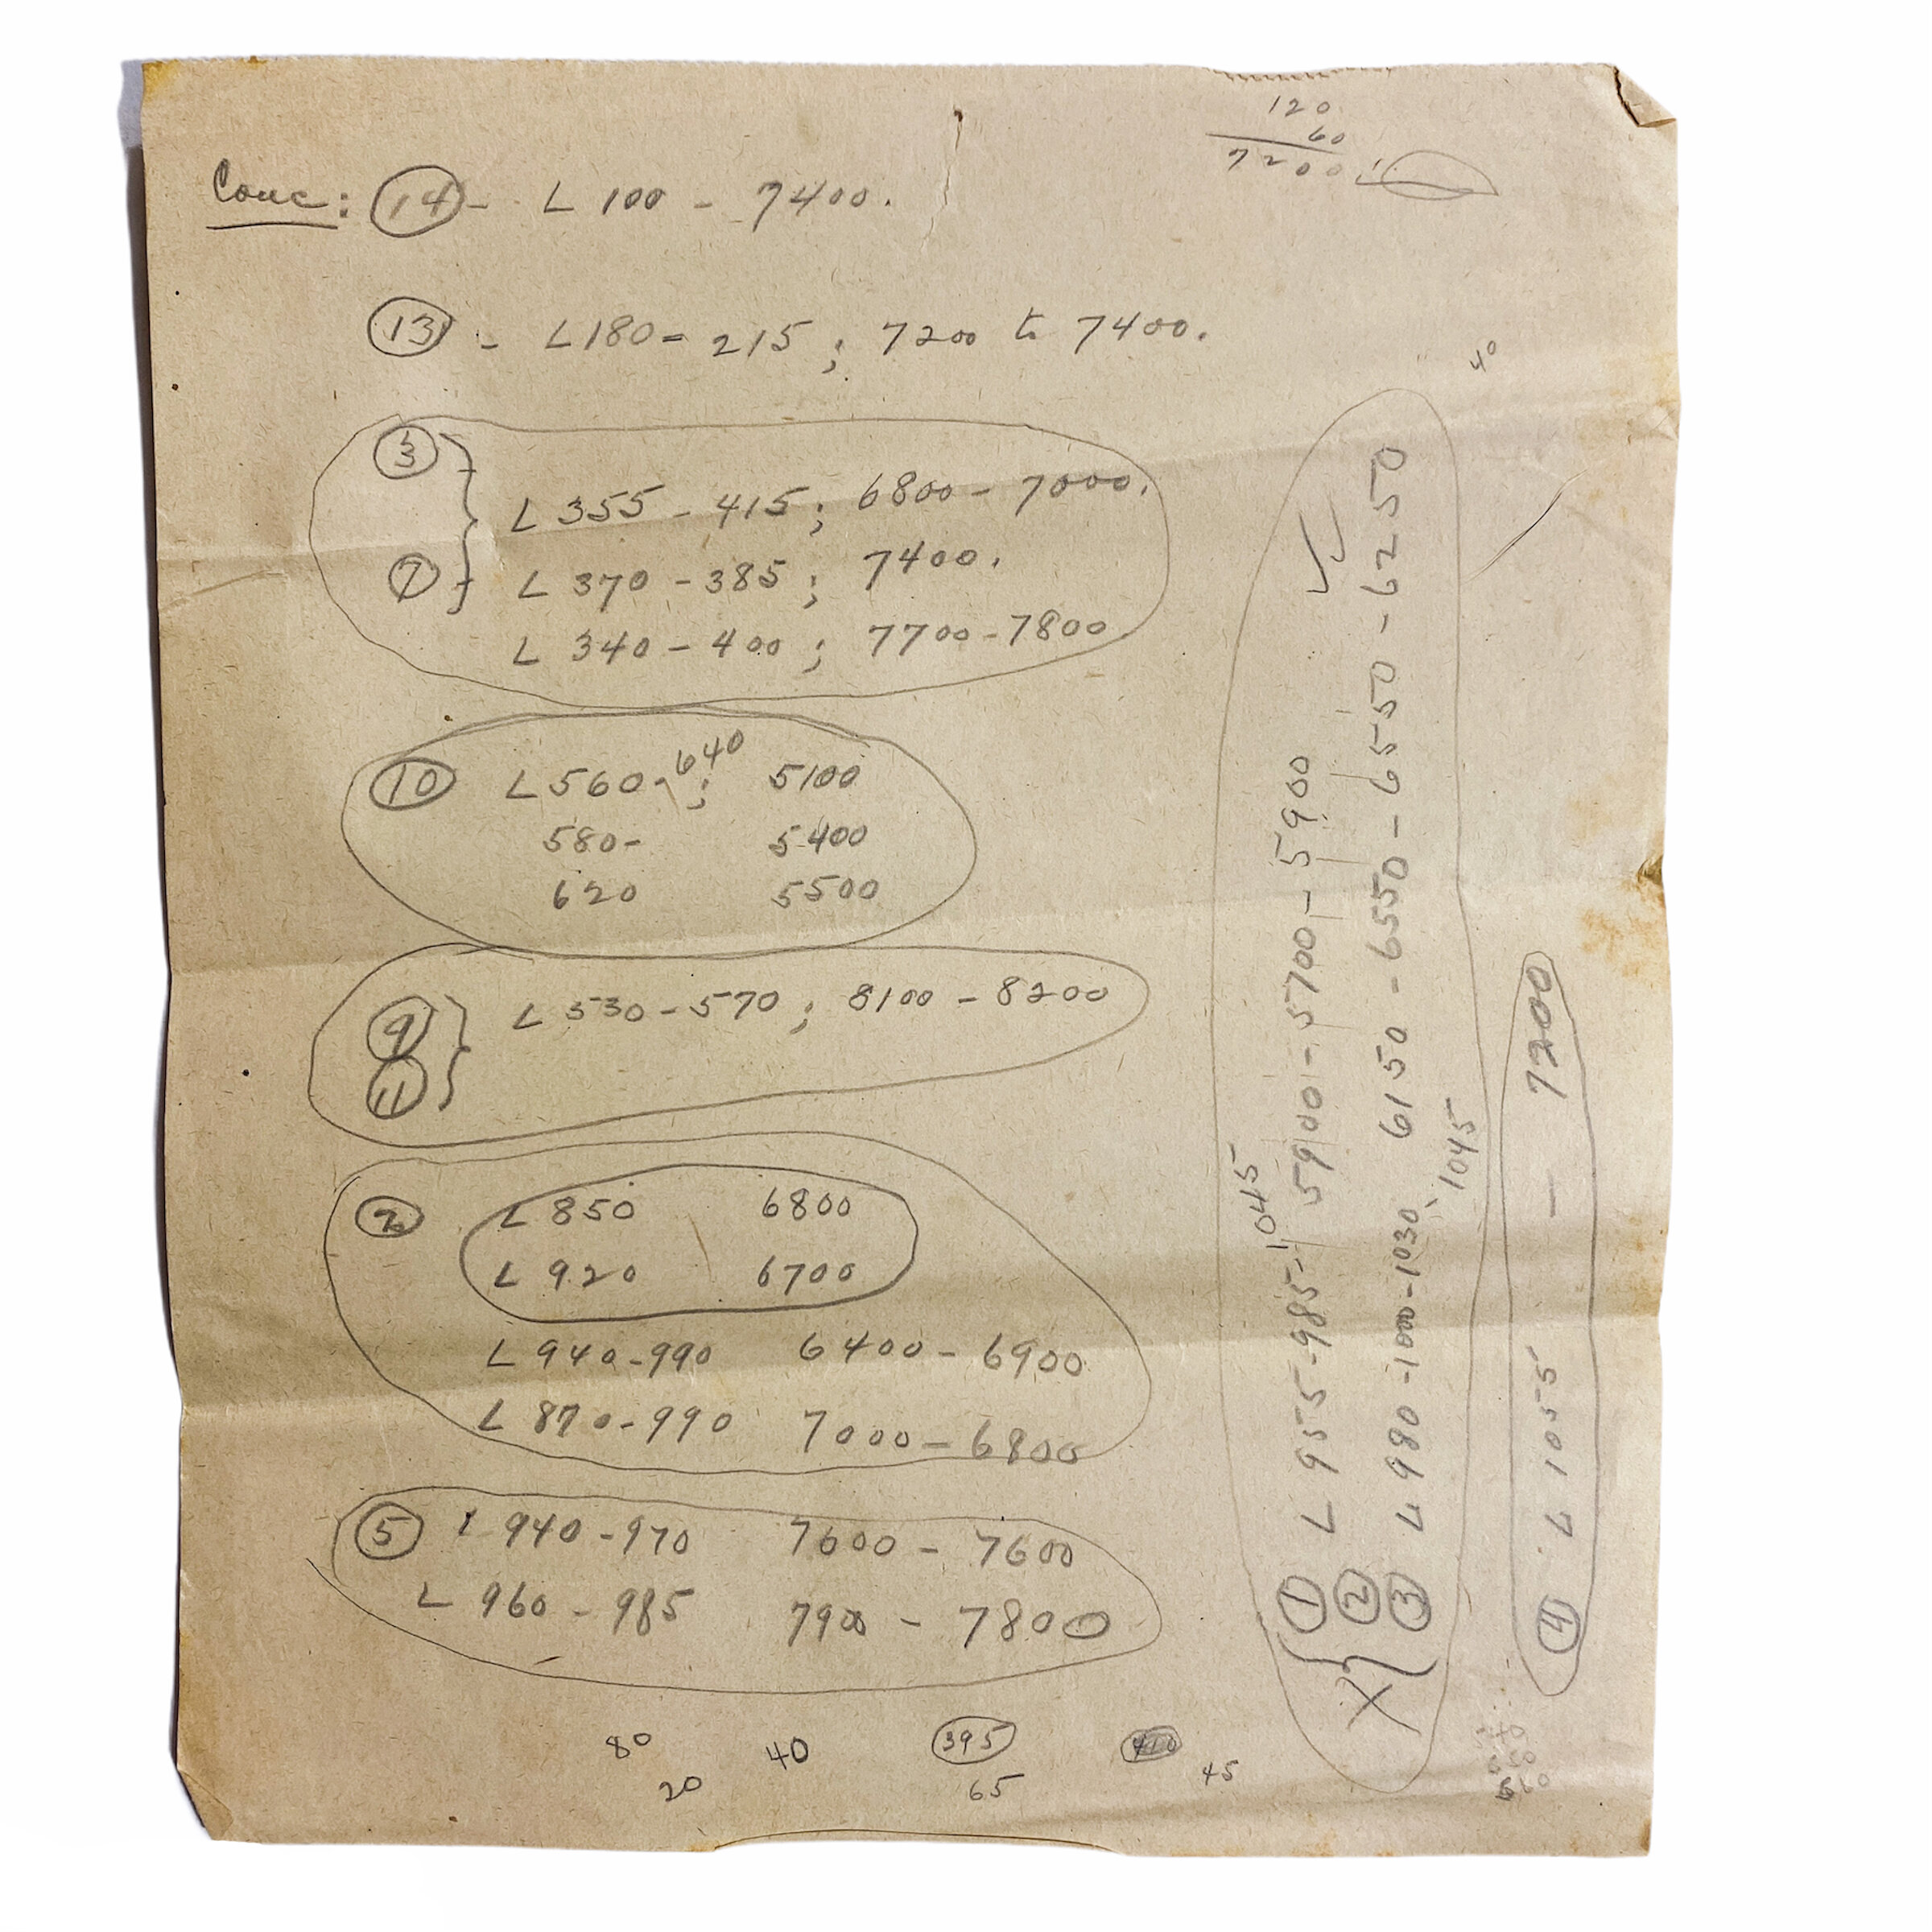 120
60
7200
Conc: 14 - L 100 - 7400.
13 - L 180 - 215 ; 7200 to 7400.
40
3
L 355 - 415 ; 6800 - 7000.
7 L 370 - 385 ; 7400.
L 340 - 400 ; 7700 - 7800
10 L 560 - 640 ; 5100
580 - 5400
620 5500
9 L 530 - 570 ; 8100 - 8200
11
2 L 850 6800
L 920 6700
L 940 - 990 6400 - 6900
L 870 - 990 7000 - 6800
5 L 940 - 970 7600 - 7600
L 960 - 985 7900 - 7800
80 40 395
20 65 45
1 L 955 - 985 - 1045 5900 - 5700 - 5900
2
3 L 980 - 1000 - 1030 - 1045 6150 - 6550 - 6550 - 6250
X
4 L 1055 - 7200